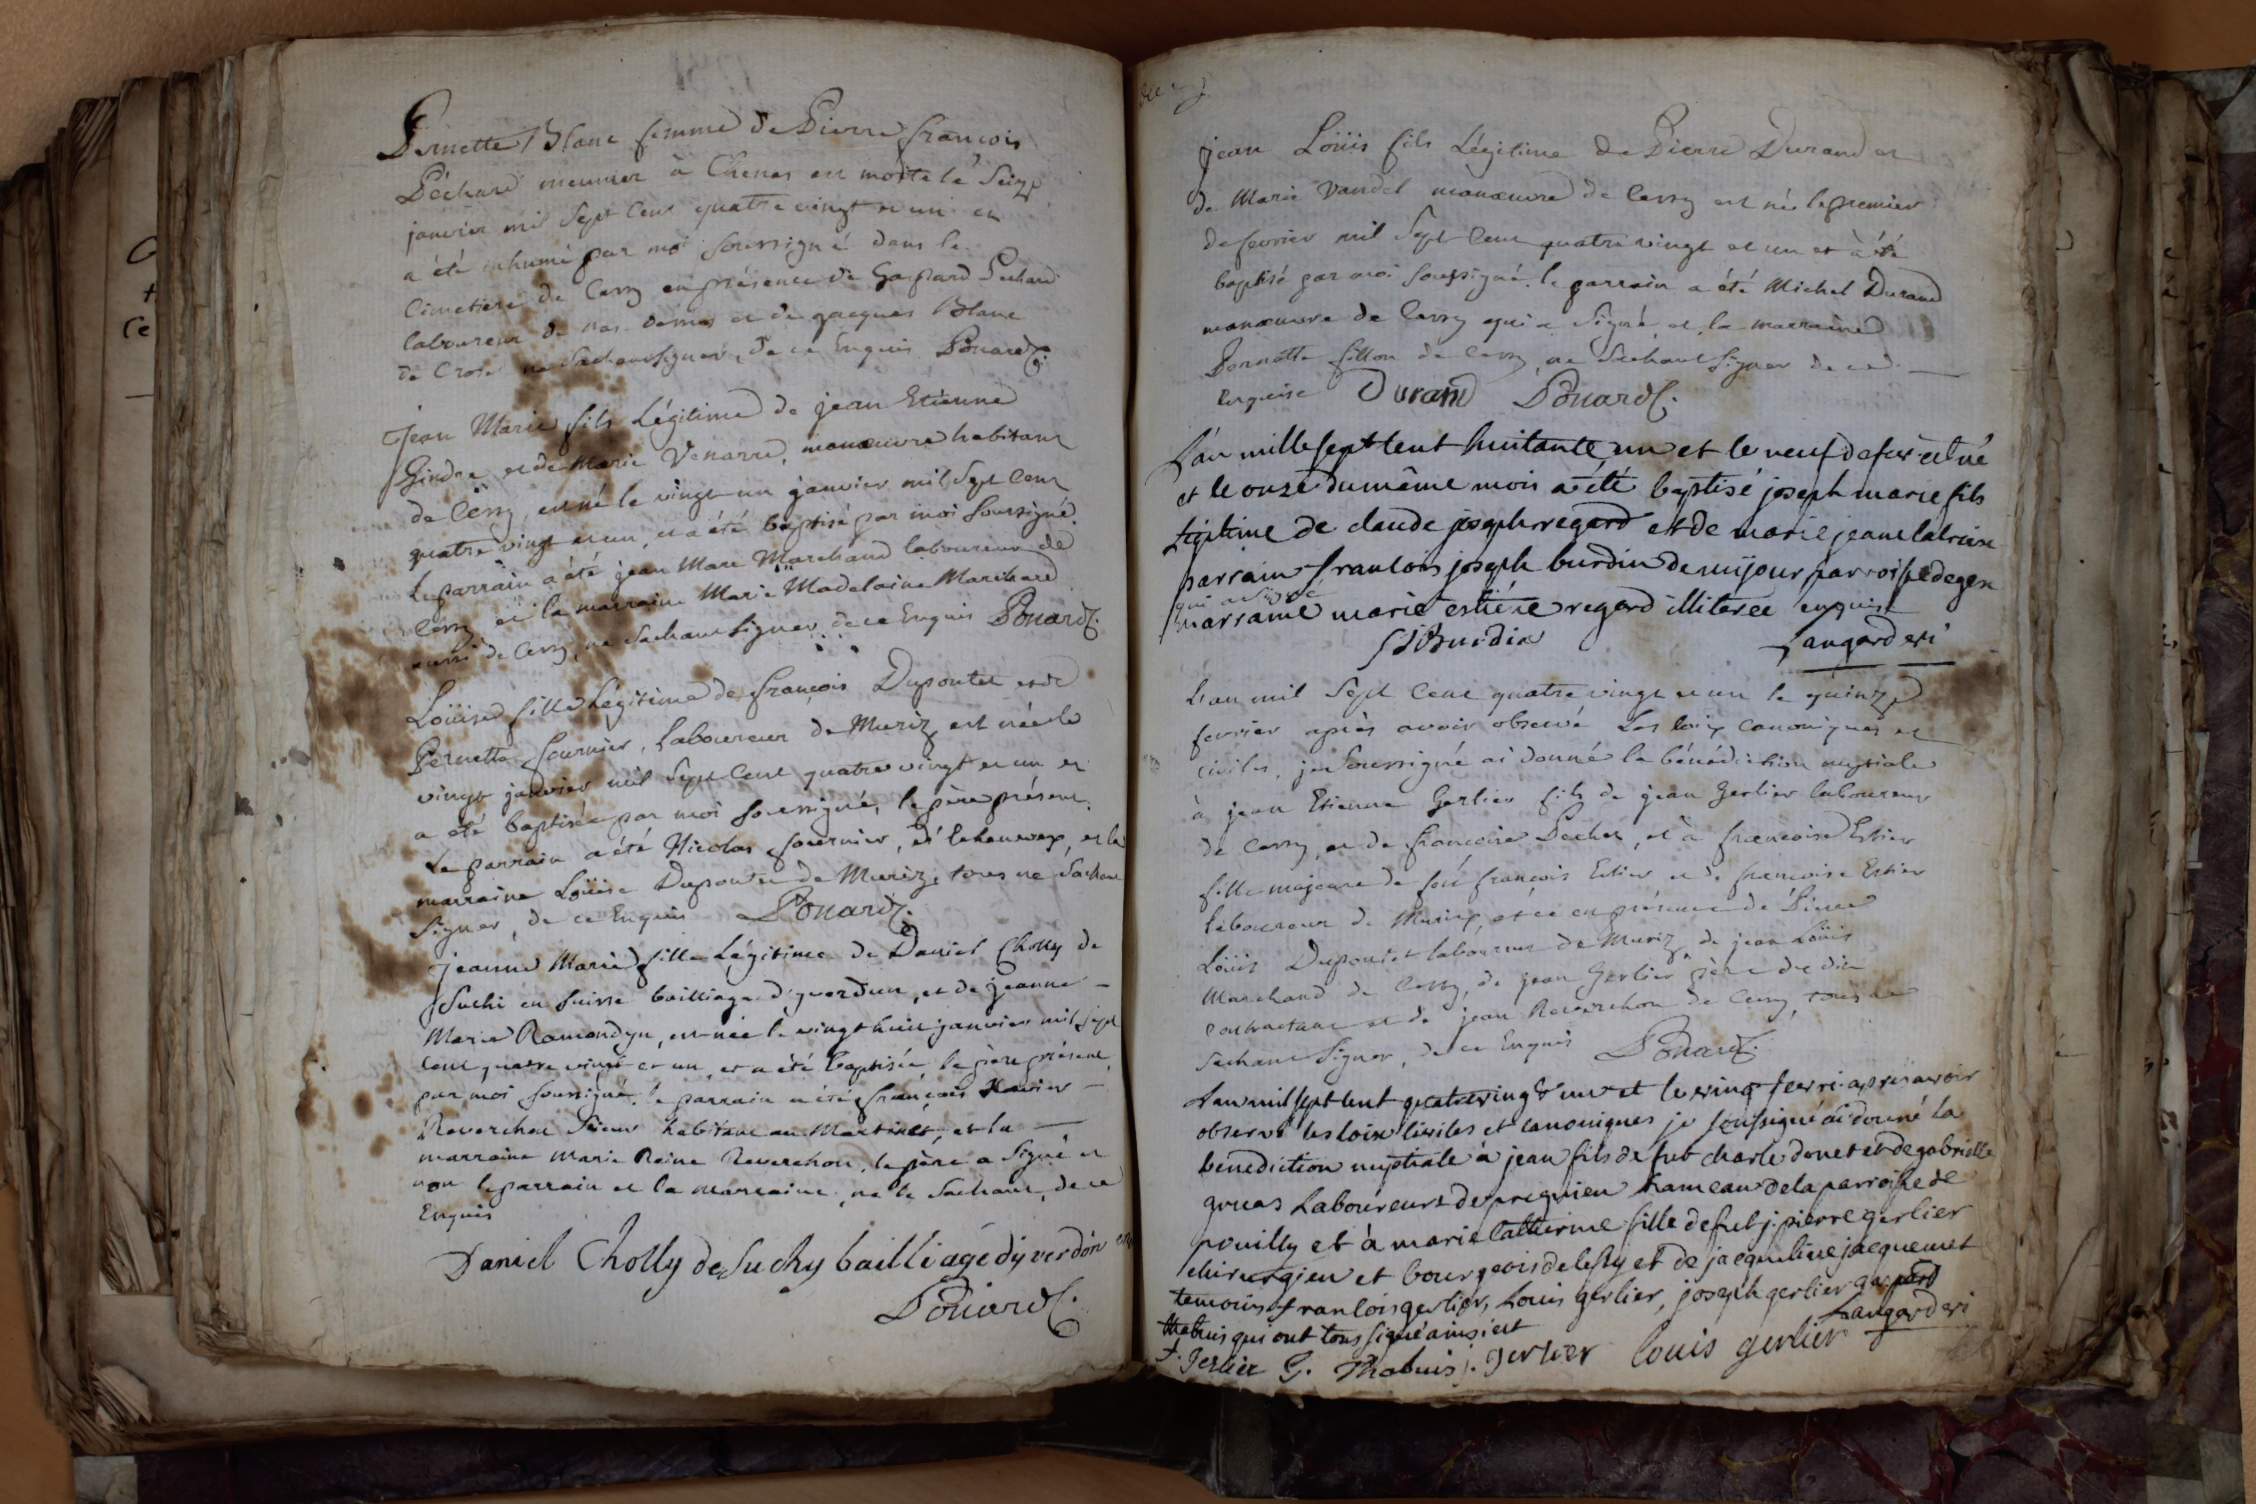 Pernette Blanc femme de Pierre françois
Péchard meunier à Chenas est morte le Seize
janvier mil Sept Cent quatre vingt et un et
a été inhumé par moi Soussigné dans le
Cimetiere de Cessy en présence de Gaspard Pechard
laboureur de et de jacques Blanc
de Crose ne Sachant Signer, de ce Enquis Pouard
Jean Marie fils Légitime de jean Etienne
Girdre et de Marie Venarre, manœuvre habitant
de Cessy, est né le vingt un janvier mil Sept Cent
quatre vingt et un, et a été baptisé par moi Soussigné.
Le parrain a été jean Marc Marchand laboureur de
Cessy et la marraine Marie Madelaine Marchand
aussi de Cessy, ne Sachant Signer de ce Enquis Pouard
Loüise fille Légitime de françois Dupontet et de
Pernette fournier, Laboureur de Muriz, est née le
vingt janvier mil Sept Cent quatre vingt et un et
a été baptisée par moi Soussigné, le père présent.
Le parrain a été Nicolas fournier, d'Echenevex, et la
marraine Loüise Dupontet de Muriz, tous ne Sachant
Signer, de ce Enquis Pouard
Jeanne Marie fille Légitime de Daniel Cholly de
Suchi en Suisse bailliage d'yverdun, et de jeanne
Marie Ramondyn, est née le vingt huit janvier mil Sept
Cent quatre vingt et un, et a été baptisée le père présent
par moi Soussigné. le parrain a été françois Xavier
Reverchon Sieur habitant au Martinet, et la
marraine Marie Reine Reverchon, le père a Signé et
non le parrain et la marraine, ne le Sachant, de ce
Enquis
Daniel Cholly de Suchy bailliage dyverdon
Pouard
Jean Loüis fils Légitime de Pierre Durand et
de Marie Vandel manœuvre de Cessy est né le premier
de fevrier mil Sept Cent quatre vingt et un et à été
baptisé par moi Soussigné. le parrain a été Michel Durand
manœuvre de Cessy qui a Signé, et la marraine
Pernette fillon de Cessy, ne Sachant Signer de ce
Enquise Durand Pouard
L'an mille sept cent huitante un et le neuf de fevr est né
et le onze du même mois a été baptisé joseph marie fils
legitime de claude joseph regard et de marie jeane lacroix
parrain francois joseph burdin de mijour parroisse de gex
qui a signé
marraine marie estiéne regard illiterée enquise
fJBurdin Langarderi
L'an mil Sept Cent quatre vingt et un le quinze
fevrier après avoir observé Les loix canoniques et
civiles, je Soussigné ai donné la bénédiction nuptiale
à jean Etienne Gerlier fils de jean Gerlier laboureur
de Cessy, et de françoise Pechet, et à françoise Estier
fille majeure de feu françois Estier et de francoise Estier
laboureur de Muriz, et ce en présence de Pierre
Loüis Dupontet laboureur de Muriz, de jean Loüis
Marchand de Cessy, de jean Gerlier père du dit
contractant et de jean Reverchon de Cessy, tous ne
Sachant Signer, de ce Enquis Pouard
L'an mil sept cent quatre vingt un et le vingt fevri. apres avoir
observé les loix civiles et canoniques je soussigné ai donné la
benediction nuptiale à jean fils de fut charle donet et de gabrielle
gruas Laboureurs de pregnien hameau de la parroisse de
pouilly et à marie Catherine fille de fut j. pierre gerlier
chirurgien et bourgeois de Cessy et de jacqueline jacquemet
temoins francois gerlier, Louis gerlier, joseph gerlier gaspard
thabuis qui ont tous signé ainsi est Langarderi
f. Gerlier G. Thabuis j. gerlier louis gerlier